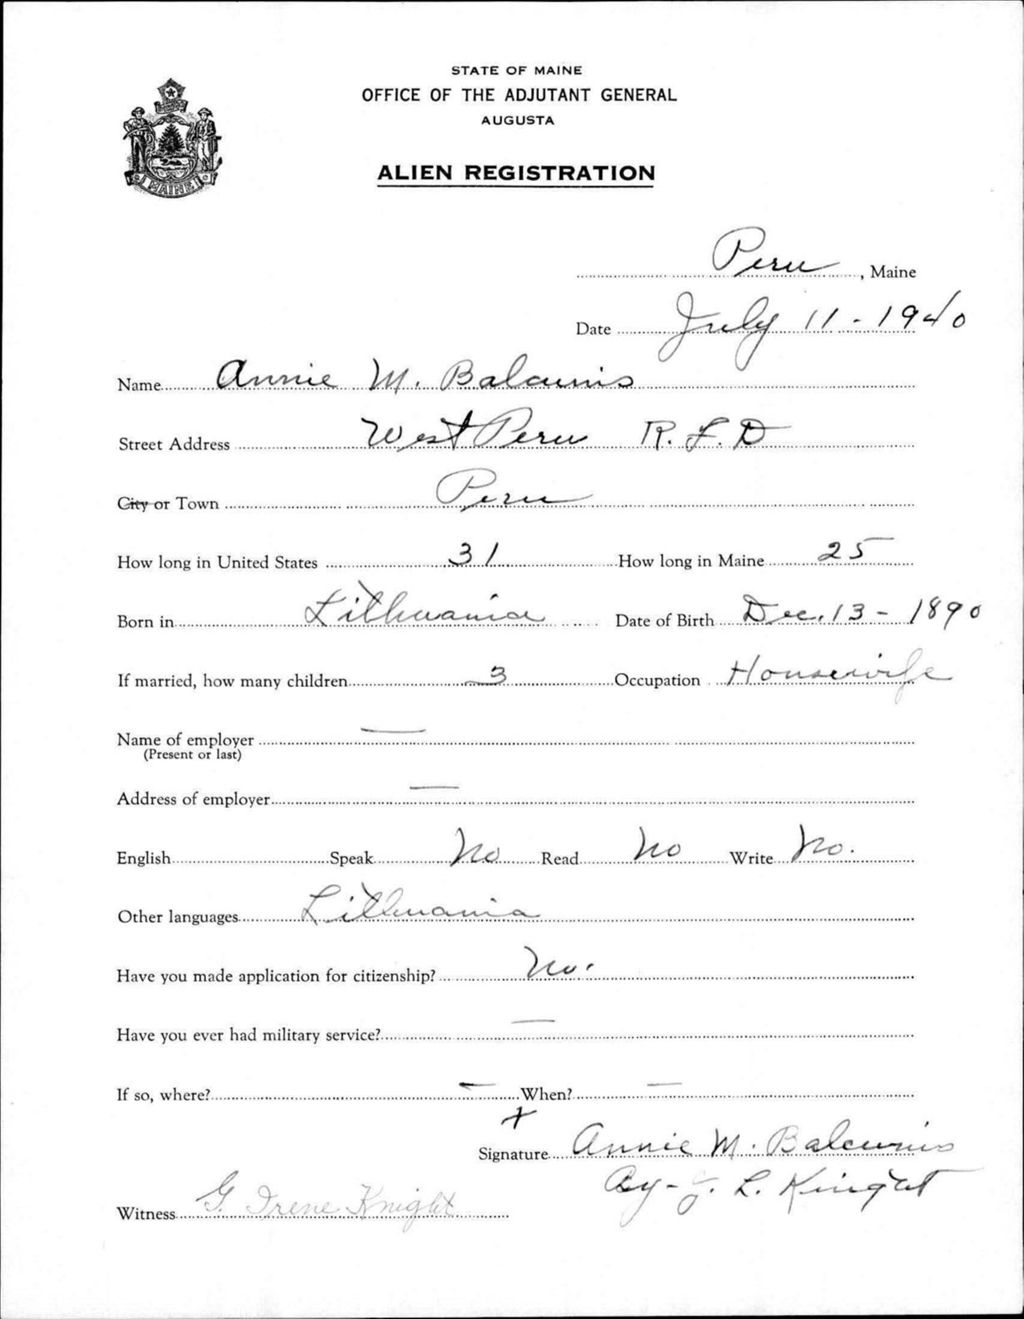 STATE OF MAINE
OFFICE OF THE ADJUTANT GENERAL
AUGUSTA
ALIEN REGISTRATION
MAINE
Peru, Maine
Date July 11 - 1940
Name Annie M. Balcunis
Street Address West Peru R. F. D
City or Town Peru
How long in United States 31 How long in Maine 25
Born in Lithuania Date of Birth Dec. 13 - 1890
If married, how many children 3 Occupation Housewife
Name of employer —
(Present or last)
Address of employer —
English Speak No Read No Write No.
Other languages Lithuania
Have you made application for citizenship? No.
Have you ever had military service? —
If so, where? — When? —
x
Signature Annie M. Balcunis
By - J. L. Knight
Witness G. Irene Knight